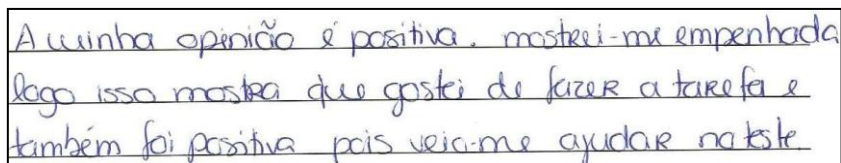 A minha opinião é positiva. mostrei-me empenhada
logo isso mostra que gostei de fazer a tarefa e
também foi positiva pois veio-me ajudar no teste